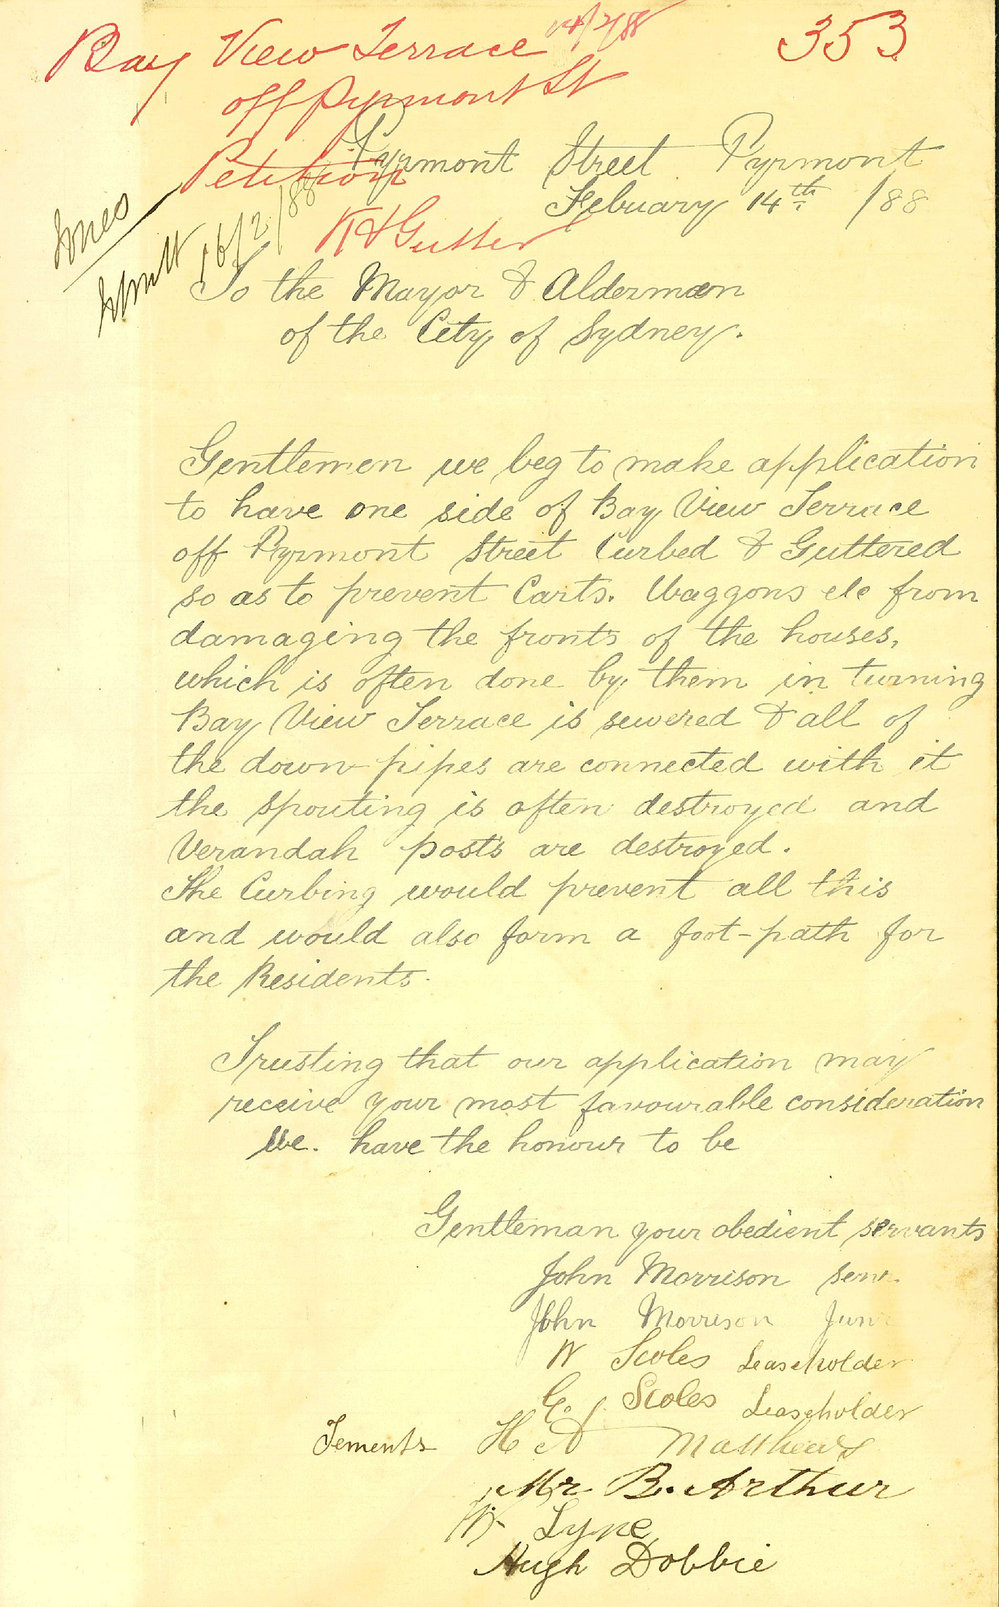 Bay View Terrace 14/2/88
353
off Pyrmont St
Petition
K & Gutter
Jones
16/2/88
Pyrmont Street Pyrmont
Febuary 14th /88
To the Mayor & Alderman
of the City of Sydney.
Gentlemen we beg to make application
to have one side of Bay View Terrace
off Pyrmont Street Curbed & Guttered
so as to prevent Carts. Waggons etc from
damaging the fronts of the houses,
which is often done by them in turning
Bay View Terrace is sewered & all of
the down-pipes are connected with it
the spouting is often destroyed and
Verandah posts are destroyed.
The Curbing would prevent all this
and would also form a foot-path for
the Residents.
Trusting that our application may
receive your most favourable consideration
We. have the honour to be
Gentleman your obedient servants
John Morrison Senr.
John Morrison Junr
W Scoles Leaseholder
G. J Scoles Leaseholder
Tements H A Matthews
Mr B. Arthur
W. Lyne
Hugh Dobbie